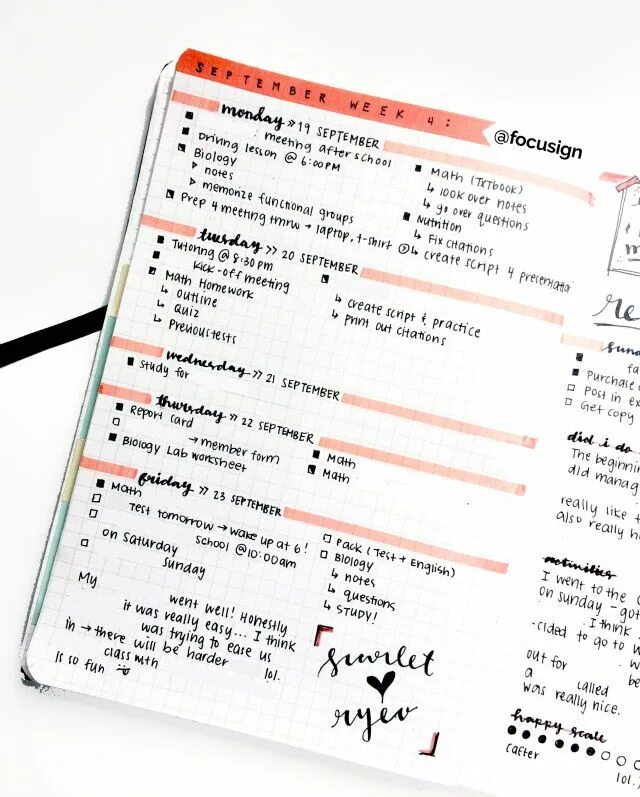 SEPTEMBER WEEK 4:
@focusign
monday >> 19 SEPTEMBER
meeting after school
Driving lesson @ 6:00PM
Biology
notes
memorize functional groups
Prep 4 meeting tmrw → laptop, t-shirt
Math (TXTbook)
↳ look over notes
↳ go over questions
Nutrition
↳ Fix citations
↳ create script 4 presentation
tuesday >> 20 SEPTEMBER
Tutoring @ 8:30pm
kick-off meeting
Math Homework
↳ outline
↳ Quiz
↳ Previous tests
↳ create script & practice
↳ Print out citations
wednesday >> 21 SEPTEMBER
study for
thursday >> 22 SEPTEMBER
Report card
→ member form
Biology Lab worksheet
Math
Math
friday >> 23 SEPTEMBER
Math
Test tomorrow → wake up at 6!
school @ 10:00am
on Saturday
Sunday
Pack (Test + English)
Biology
↳ notes
↳ questions
↳ STUDY!
My
went well! Honestly
it was really easy... I think
was trying to ease us
in → there will be harder
class mth lol.
Is so fun
scarlet
ryev
re
sund
fa
Purchase
Post in ex
Get copy
did i do
The beginnin
did manag
really like t
also really h
activities
I went to the
on sunday - got
I think
-cided to go to w
w
out for be
a called
was really nice.
happy scale
(after
lol.